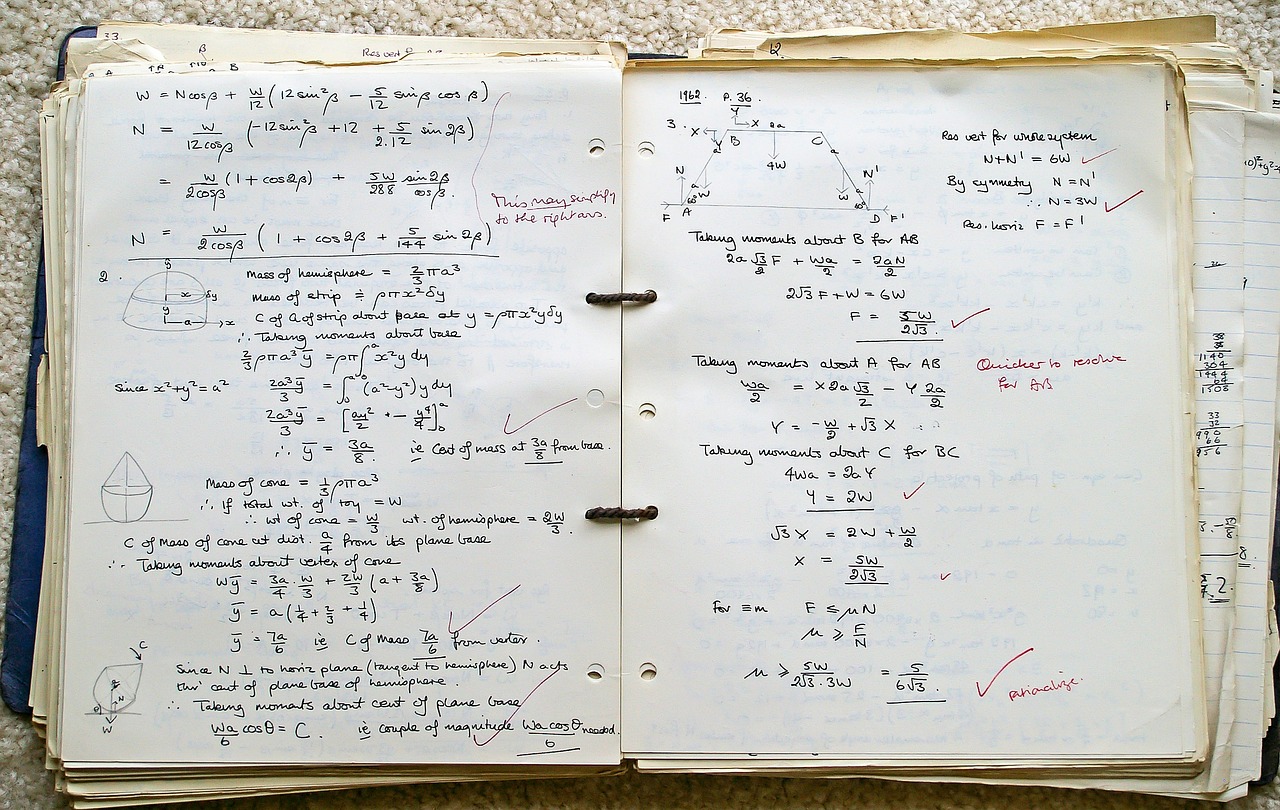 33.
β
Res vert
B
W = Ncosβ + W/12 (12sin²β − 5/12 sinβ cosβ)
N = W/12cosβ (−12sin²β + 12 + 5/2.12 sin2β)
= W/2cosβ (1 + cos2β) + 5W/288 sin2β/cosβ.
This may simplify
to the right ans.
N = W/2cosβ (1 + cos2β + 5/144 sin2β)
2.
y
x δy
y
a x
Mass of hemisphere = 2/3 πa³
Mass of strip ≑ ρπx²δy
C of G of strip about base at y = ρπx²yδy
∴ Taking moments about base
2/3 ρπa³ȳ = ρπ∫₀ᵃ x²y dy
Since x²+y²=a² 2a³ȳ/3 = ∫₀ᵃ (a²−y²)y dy
2a³ȳ/3 = [ay²/2 − y⁴/4]₀ᵃ
∴ ȳ = 3a/8 ie Cent of mass at 3a/8 from base.
Mass of cone = 1/3 ρπa³
∴ If total wt. of toy = W
∴ wt of cone = W/3 wt. of hemisphere = 2W/3.
C of Mass of cone at dist. a/4 from its plane base
∴ Taking moments about vertex of cone
Wȳ = 3a/4 . W/3 + 2W/3 (a + 3a/8)
ȳ = a(1/4 + 2/3 + 1/4)
ȳ = 7a/6 ie C of Mass 7a/6 from vertex.
C
θ
N
W
Since N ⊥ to horiz plane (tangent to hemisphere) N acts
thro' cent of plane base of hemisphere.
∴ Taking moments about cent of plane base
Wa/6 cosθ = C. ie couple of magnitude Wa cosθ/6 needed.
12.
1962. P. 36.
3.
Y
X X 2a
B C
Y a a
4W
N N'
a W W a
60° 60°
F A D F'
Res vert for whole system
N+N' = 6W
By symmetry N = N'
∴ N = 3W
Res. horiz F = F'
Taking moments about B for AB
2a √3/2 F + Wa/2 = 2aN/2
2√3 F + W = 6W
F = 5W/2√3.
Taking moments about A for AB
Quicker to resolve
for AB
Wa/2 = X 2a √3/2 − Y 2a/2
Y = −W/2 + √3 X
Taking moments about C for BC
4Wa = 2aY
Y = 2W
√3 X = 2W + W/2
X = 5W/2√3
For ≡m F ≤ μN
μ ≥ F/N
μ ≥ 5W/2√3.3W = 5/6√3.
rationalize.
38
38
1140
304
1444
64
1508
33
32
990
66
956